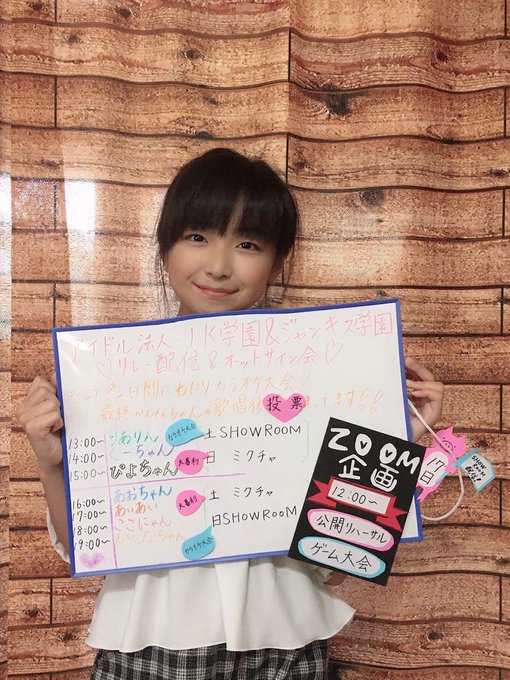 アイドル法人・JK学園&ジャンキス学園
♡リレー配信&ネットサイン会♡
そして!2日間にわたりカラオケ大会!
最終 ちゃんの歌唱後 投票 ってます!!
13:00〜 りおりん カラオケ大会 土 SHOWROOM
14:00〜 くーちゃん
15:00〜 ぴよちゃん 大喜利 日 ミクチャ
16:00〜 あおちゃん 大喜利 土 ミクチャ
17:00〜 あいあい
18:00〜 ここにゃん 日 SHOWROOM
19:00〜 ちゃん カラオケ大会
ZOOM
企画
12:00〜
公開リハーサル
ゲーム大会
17日
SHOW
ROOM